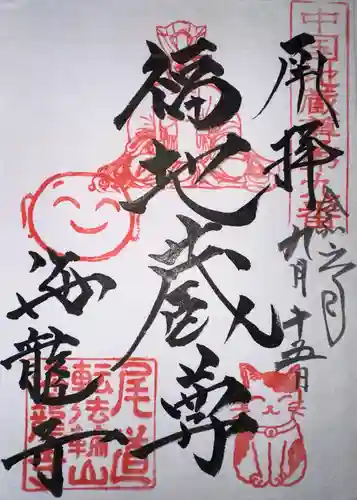 中国地蔵尊第九番
承拝
癸卯之月
九月十五日
福地蔵尊
海龍寺
尾道
転法輪山
海龍寺